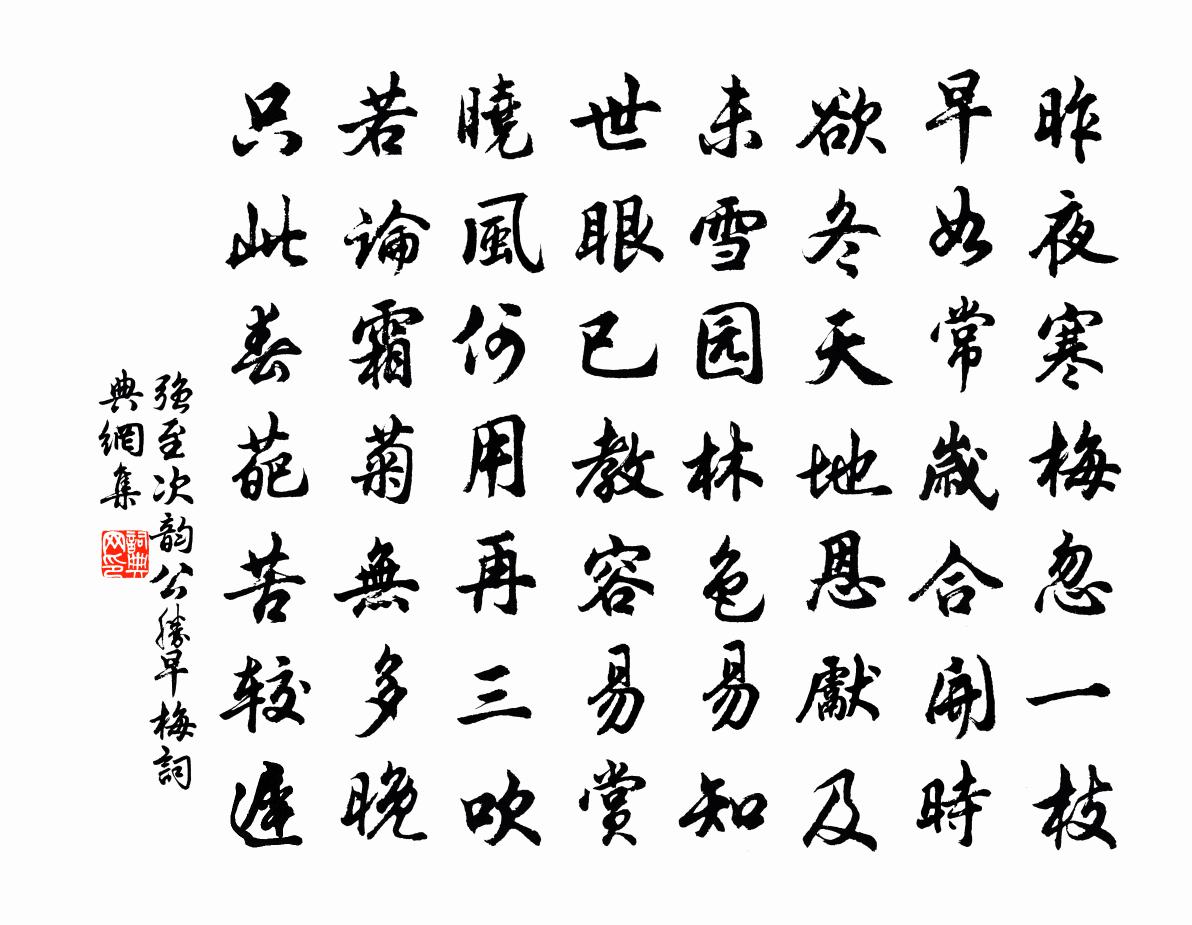 昨夜寒梅忽一枝
早如常歲合開時
欲冬天地恩獻及
未雪园林色易知
世眼已教容易赏
曉風何用再三吹
若論霜菊無多晚
只此春葩苦较遲
强至次韵公勝早梅詞
典網集
詞典
网印